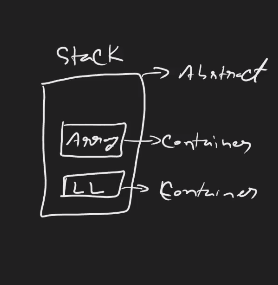 Stack
Abstract
Array
Container
LL
Container